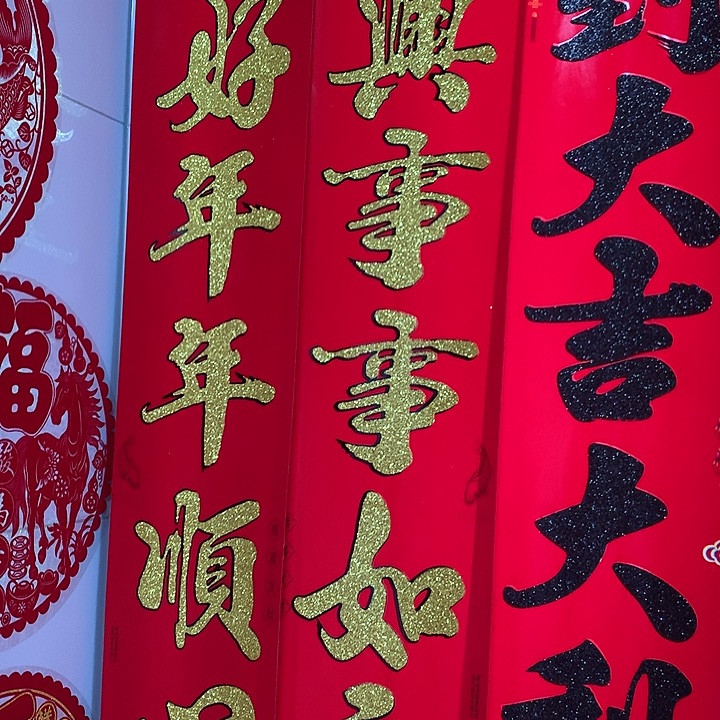 到大吉大利
興事事如
好年年順
福